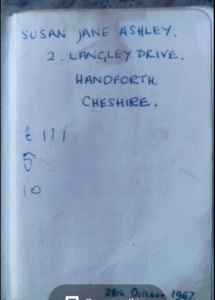 SUSAN JANE ASHLEY.
2. LANGLEY DRIVE.
HANDFORTH.
CHESHIRE.
5
10
28th October, 1967